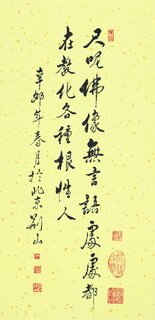 只呢佛像無言語處處都
在教化各種根性人
辛卯年春月於北京荆山